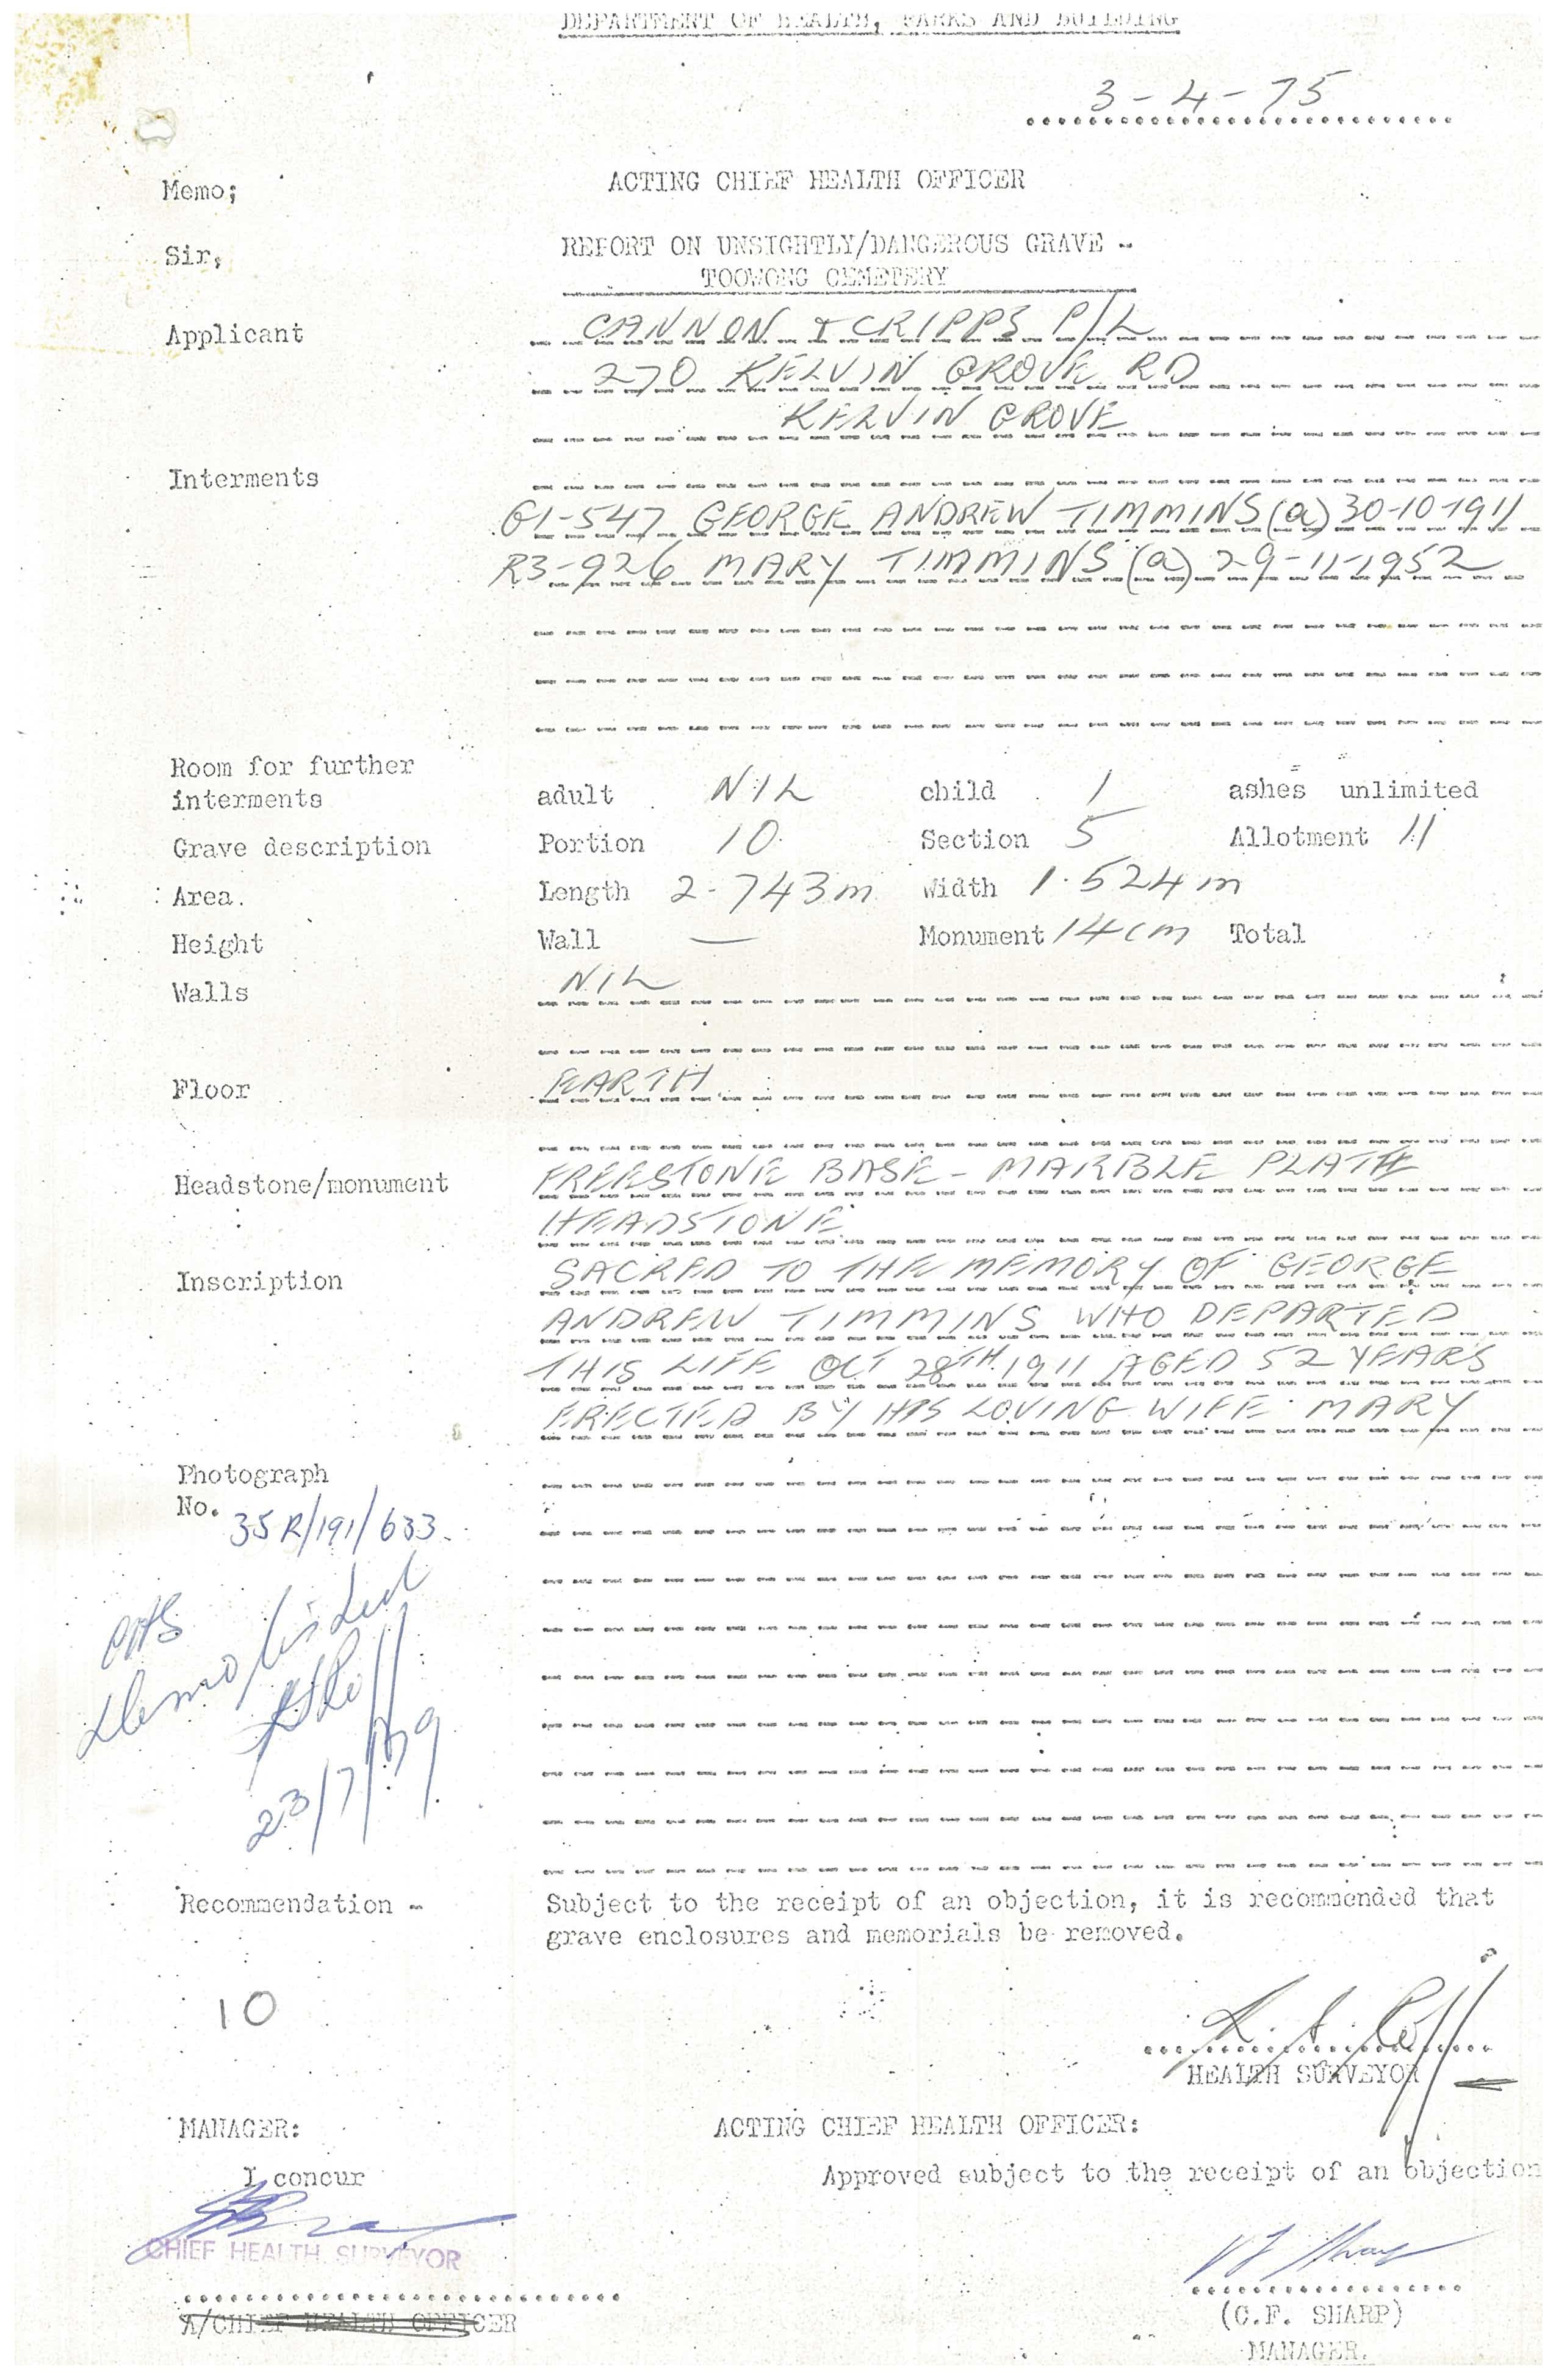 DEPARTMENT OF HEALTH, PARKS AND BUILDING
3-4-75
Memo; ACTING CHIEF HEALTH OFFICER
Sir, REPORT ON UNSIGHTLY/DANGEROUS GRAVE -
TOOWONG CEMETERY
Applicant CANNON & CRIPPS P/L
270 KELVIN GROVE RD
KELVIN GROVE
Interments
G1-547 GEORGE ANDREW TIMMINS (a) 30-10-1911
R3-926 MARY TIMMINS (a) 29-11-1952
Room for further
interments adult NIL child 1 ashes unlimited
Grave description Portion 10 Section 5 Allotment 11
Area. Length 2.743m Width 1.524m
Height Wall — Monument 14cm Total
Walls NIL
Floor EARTH
Headstone/monument FREESTONE BASE - MARBLE PLATE
HEADSTONE
Inscription SACRED TO THE MEMORY OF GEORGE
ANDREW TIMMINS WHO DEPARTED
THIS LIFE OCT 28TH 1911 AGED 52 YEARS
ERECTED BY HIS LOVING WIFE MARY
Photograph
No. 35R/191/633.
demolished
23/7/79
Recommendation - Subject to the receipt of an objection, it is recommended that
grave enclosures and memorials be removed.
10
HEALTH SURVEYOR
MANAGER: ACTING CHIEF HEALTH OFFICER:
I concur Approved subject to the receipt of an objection
CHIEF HEALTH SURVEYOR
A/CHIEF HEALTH OFFICER
(C.F. SHARP)
MANAGER.